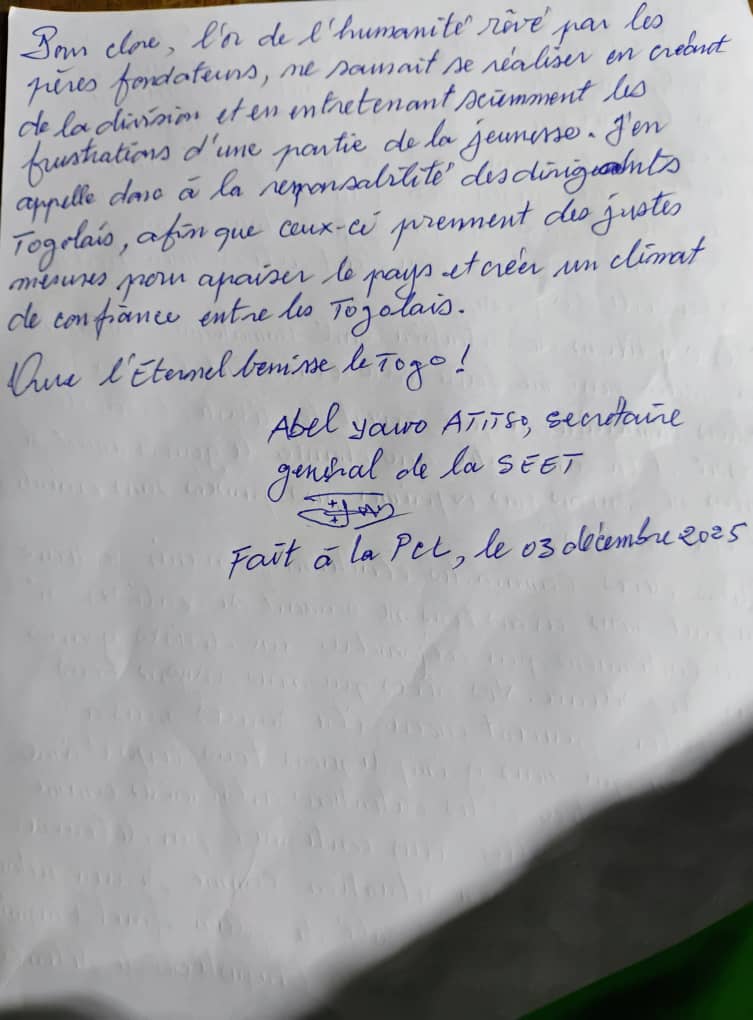 Pour clore, l'or de l'humanité rêvé par les
pères fondateurs, ne saurait se réaliser en créant
de la division et en entretenant sciemment les
frustrations d'une partie de la jeunesse. J'en
appelle donc à la responsabilité des dirigeants
Togolais, afin que ceux-ci prennent des justes
mesures pour apaiser le pays et créer un climat
de confiance entre les Togolais.
Que l'Eternel benisse le Togo !
Abel yawo ATITSO, secrétaire
général de la SEET
Fait à la PCL, le 03 décembre 2025